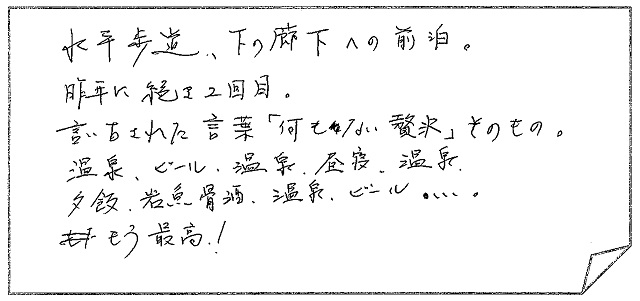 水平歩道、、下の廊下への前泊。
昨年に続き2回目。
言い古された言葉「何もしない贅沢」そのもの。
温泉、ビール、温泉、昼寝、温泉、
夕飯、岩魚骨酒、温泉、ビール 。。。。
もう最高！